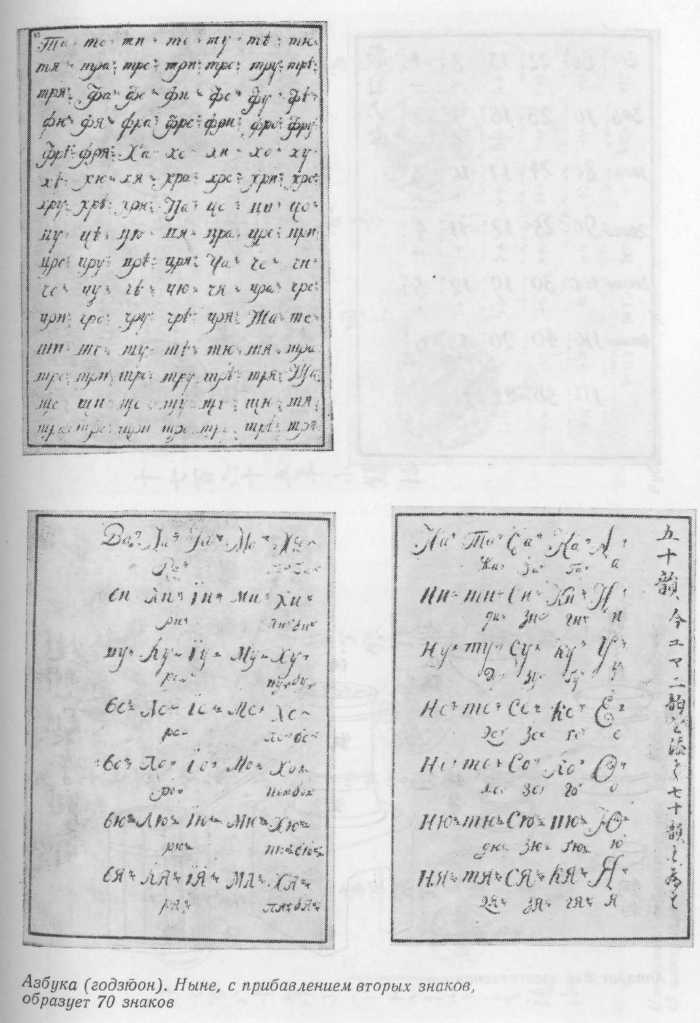 Та те ти то ту тѣ тю
тя тра тре три тро тру трѣ
тря Фа фе фи фо фу фѣ
фю фя фра фре фри фро фру
фрѣ фря Ха хе хи хо ху
хѣ хю хя хра хре хри хро
хру хрѣ хря Ца це ци цо
цу цѣ цю ця цра цре цри
цро цру црѣ цря Ча че чи
чо чу чѣ чю чя чра чре
чри чро чру чрѣ чря Ша ше
ши шо шу шѣ шю шя шра
шре шри шро шру шрѣ шря Ща
ще щи що щу щѣ щю щя
щра щре щри щро щру щрѣ щря
Ва Ла Іа Ма Ха
Ра Па Ба
ви Ли Їи Ми Хи
ри пи ви
ву Лу Їу Му Ху
ру пу бу
ве Ле Їе Ме Хе
ре пе бе
во Ло Їо Мо Хо
ро по бо
вю Лю Їю Мю Хю
рю пю бю
вя ЛЯ ЇЯ МЯ ХЯ
ря пя бя
На Та Са Ка А
да за га а
Ни ти Си Ки И
ди зи ги и
Ну ту Су Ку У
ду зу гу у
Не те Се Ке Е
де зе ге е
Но то Со Ко О
до зо го о
Ню тю Сю кю Ю
дю зю гю ю
НЯ тя СЯ КЯ Я
дя зя гя я
五十韻 今 二韻を 七十韻と
Азбука (годзю̄он). Ныне, с прибавлением вторых знаков,
образует 70 знаков